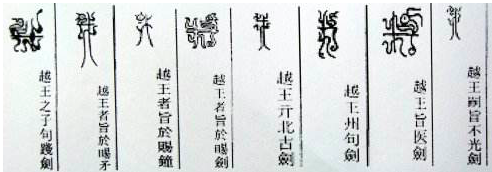 越王嗣旨不光劍
越王旨医劍
越王州句劍
越王亓北古劍
越王者旨於賜劍
越王者旨於賜鐘
越王者旨於賜矛
越王之子句踐劍